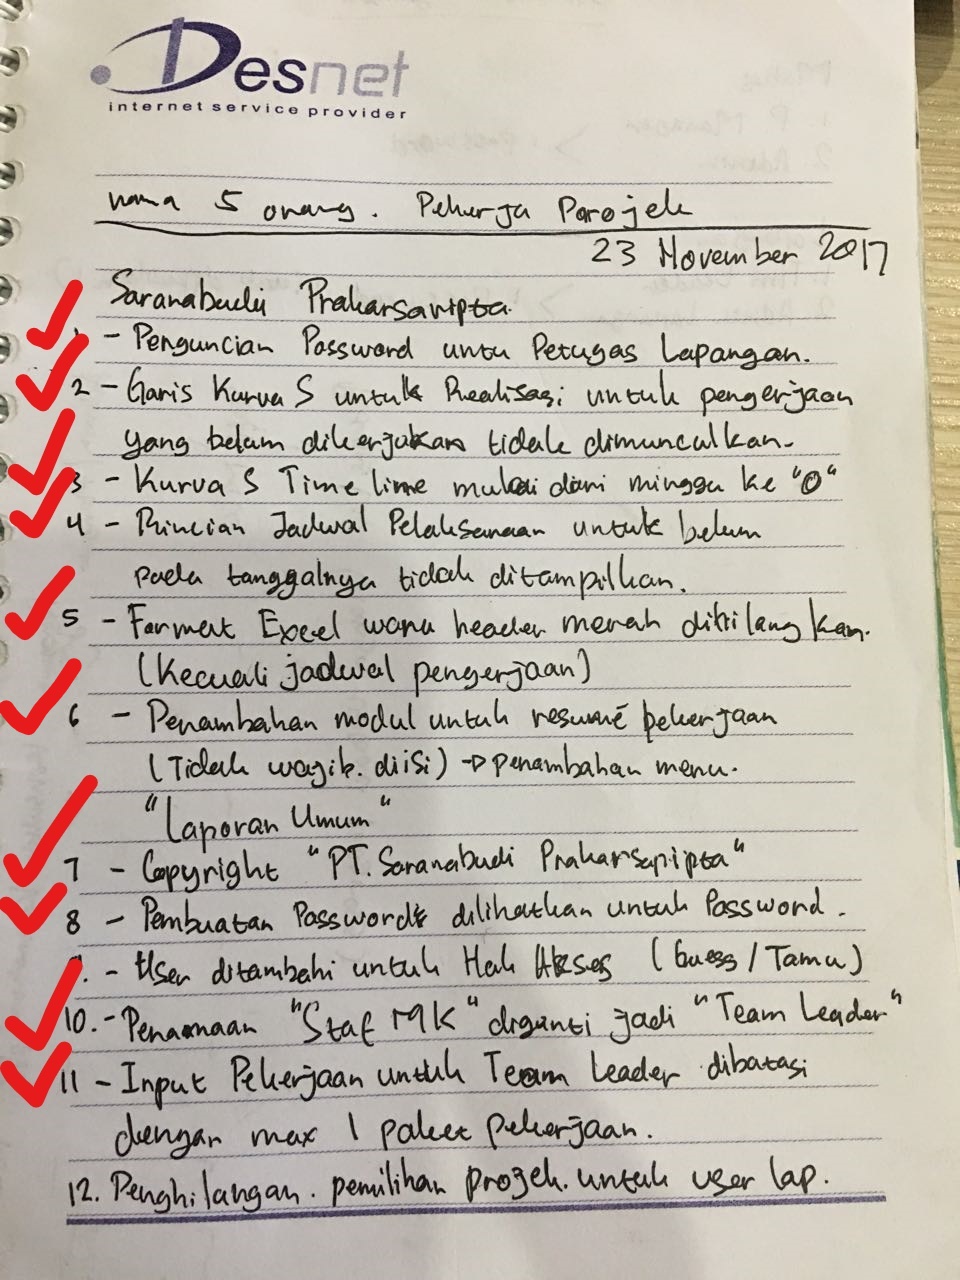 Desnet
internet service provider
nama 5 orang. Pekerja Porojek
23 November 2017
Saranabudi Prakarsaripta
1 - Penguncian Password untu Petugas Lapangan.
2 - Garis Kurva S untuk Realisasi untuk pengerjaan
yang belum dikerjakan tidak dimunculkan.
3 - Kurva S Time lime mulai dari minggu ke "0"
4 - Rincian Jadwal Pelaksanaan untuk belum
pada tanggalnya tidak ditampilkan.
5 - Format Excel warna header merah dihilangkan.
(Kecuali jadwal pengerjaan)
6 - Penambahan modul untuk resumé pekerjaan
(Tidak wajib diisi) → penambahan menu.
"Laporan Umum"
7 - Copyright "PT. Saranabudi Prakarsaripta"
8 - Pembuatan Password dilihatkan untuk Password.
9. - User ditambahi untuk Hak Akses (Guess / Tamu)
10. - Penamaan "Staf MK" diganti jadi "Team Leader"
11 - Input Pekerjaan untuk Team Leader dibatasi
dengan max 1 paket pekerjaan.
12. Penghilangan. pemilihan projek. untuk user lap.